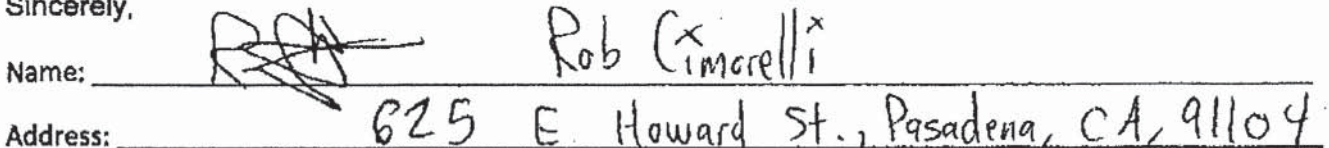 Sincerely,
Name: Rob Cimorelli
Address: 625 E. Howard St., Pasadena, CA, 91104